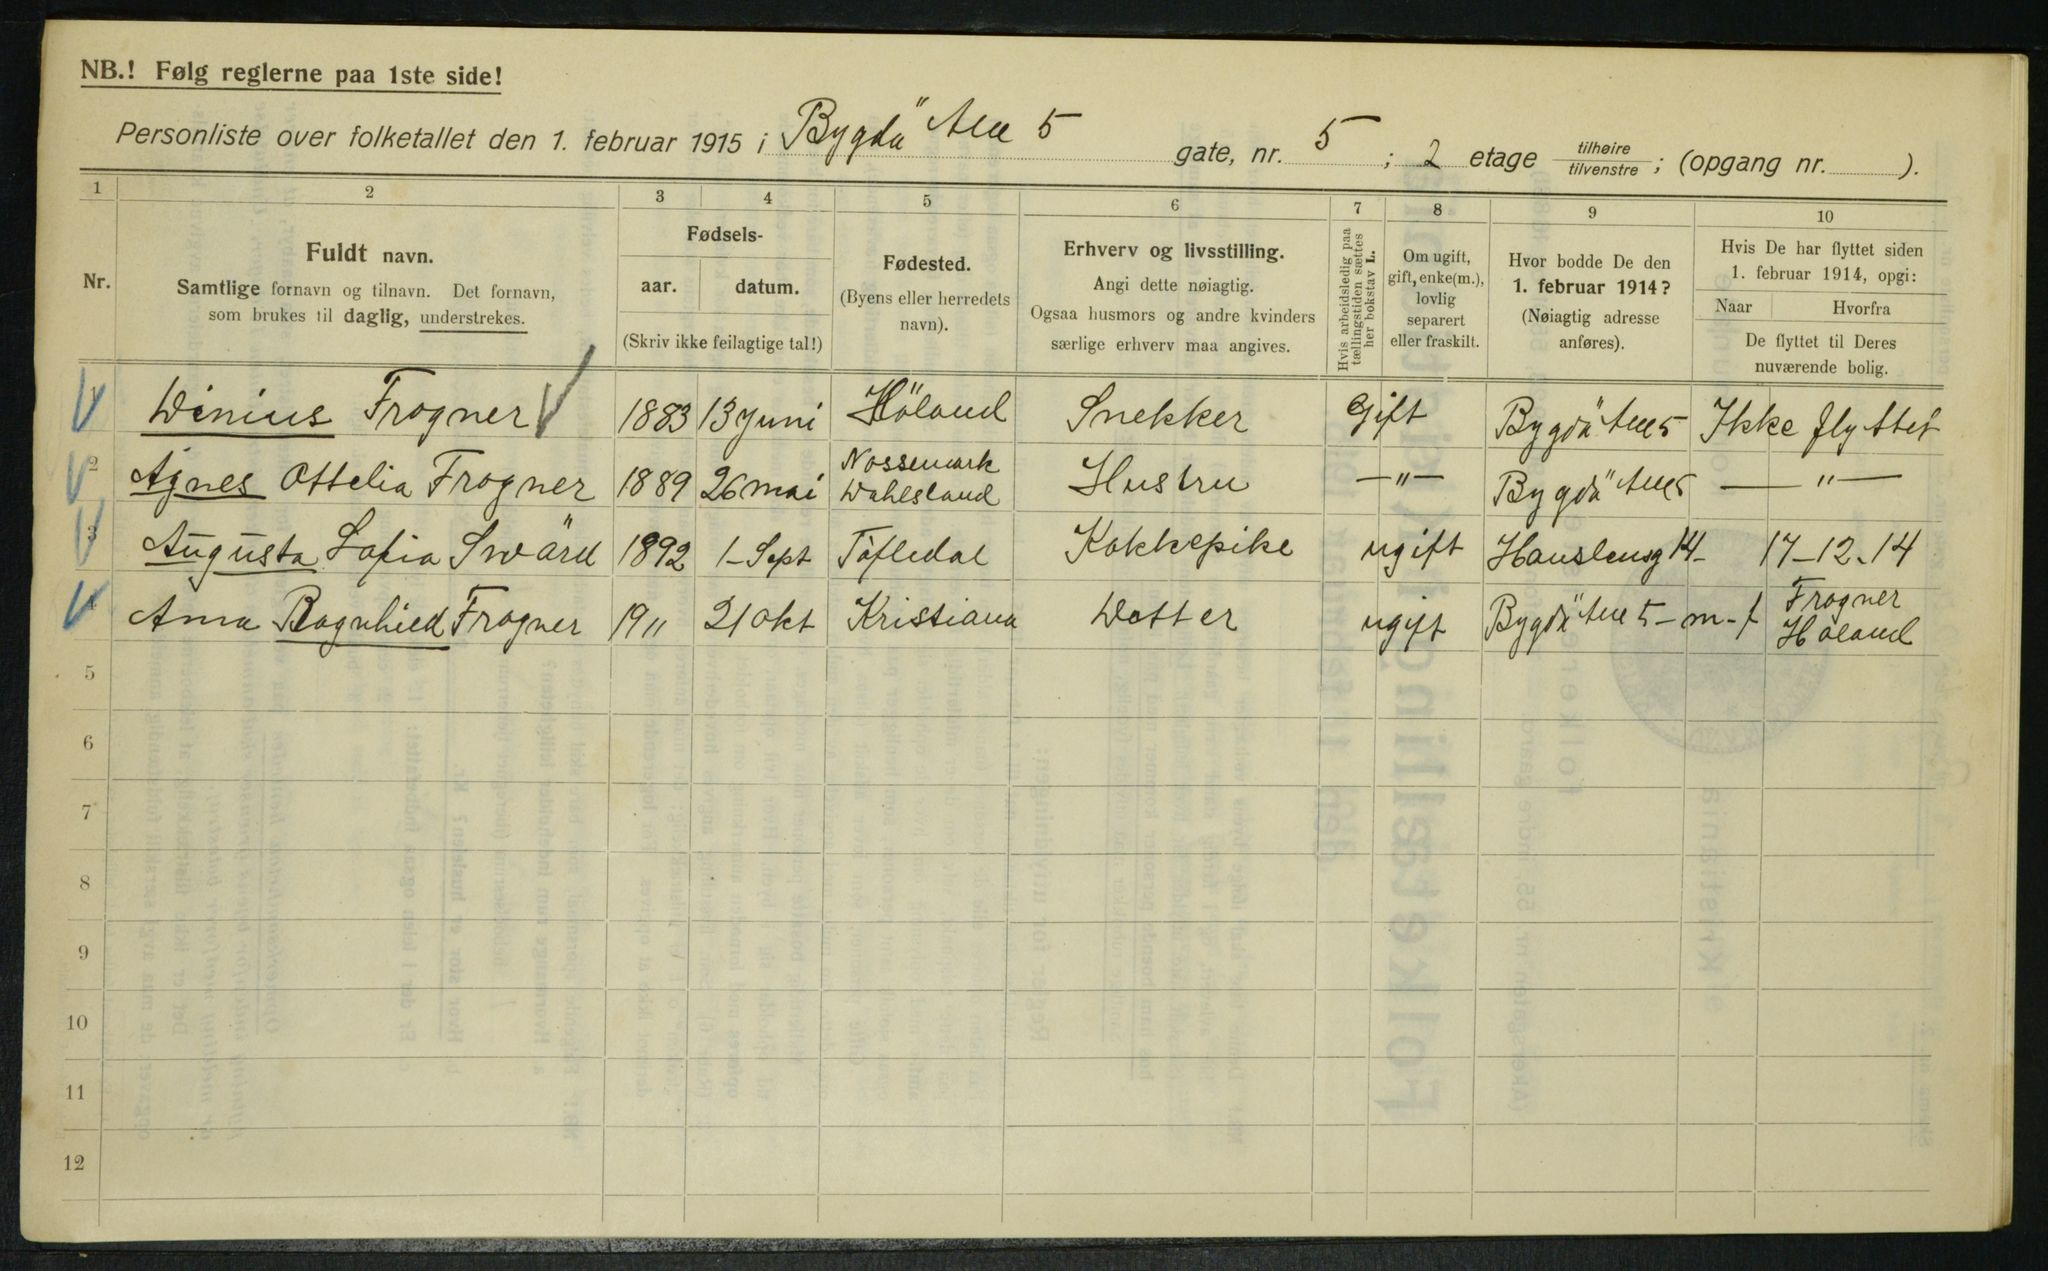 NB.! Følg reglerne paa 1ste side!
Personliste over folketallet den 1. februar 1915 i Bygdö Alle 5 gate, nr. 5 ; 2 etage tilhøire / tilvenstre ; (opgang nr. ).
1 2 3 4 5 6 7 8 9 10
Nr.
Fuldt navn.
Samtlige fornavn og tilnavn. Det fornavn,
som brukes til daglig, understrekes.
Fødsels-
aar. datum.
(Skriv ikke feilagtige tal!)
Fødested.
(Byens eller herredets
navn).
Erhverv og livsstilling.
Angi dette nøiagtig.
Ogsaa husmors og andre kvinders
særlige erhverv maa angives.
Hvis arbeidsledig paa
tællingstiden sættes
her bokstav L.
Om ugift,
gift, enke(m.),
lovlig
separert
eller fraskilt.
Hvor bodde De den
1. februar 1914?
(Nøiagtig adresse
anføres).
Hvis De har flyttet siden
1. februar 1914, opgi:
Naar Hvorfra
De flyttet til Deres
nuværende bolig.
1 Winius Frogner 1883 13 juni Höland Snekker Gift Bygdö Alle 5 Ikke flyttet
2 Agnes Ottelia Frogner 1889 26 mai Nossemark Hustru —"— Bygdö Alle 5 —"—
Dahlsland
3 Augusta Sofia Swärd 1892 1 Sept Töftedal Kokkepike ugift 14 17-12-14
4 Anna Ragnhild Frogner 1911 21 okt Kristiana Datter ugift Bygdö Alle 5 - m - f Frogner
Höland
5
6
7
8
9
10
11
12